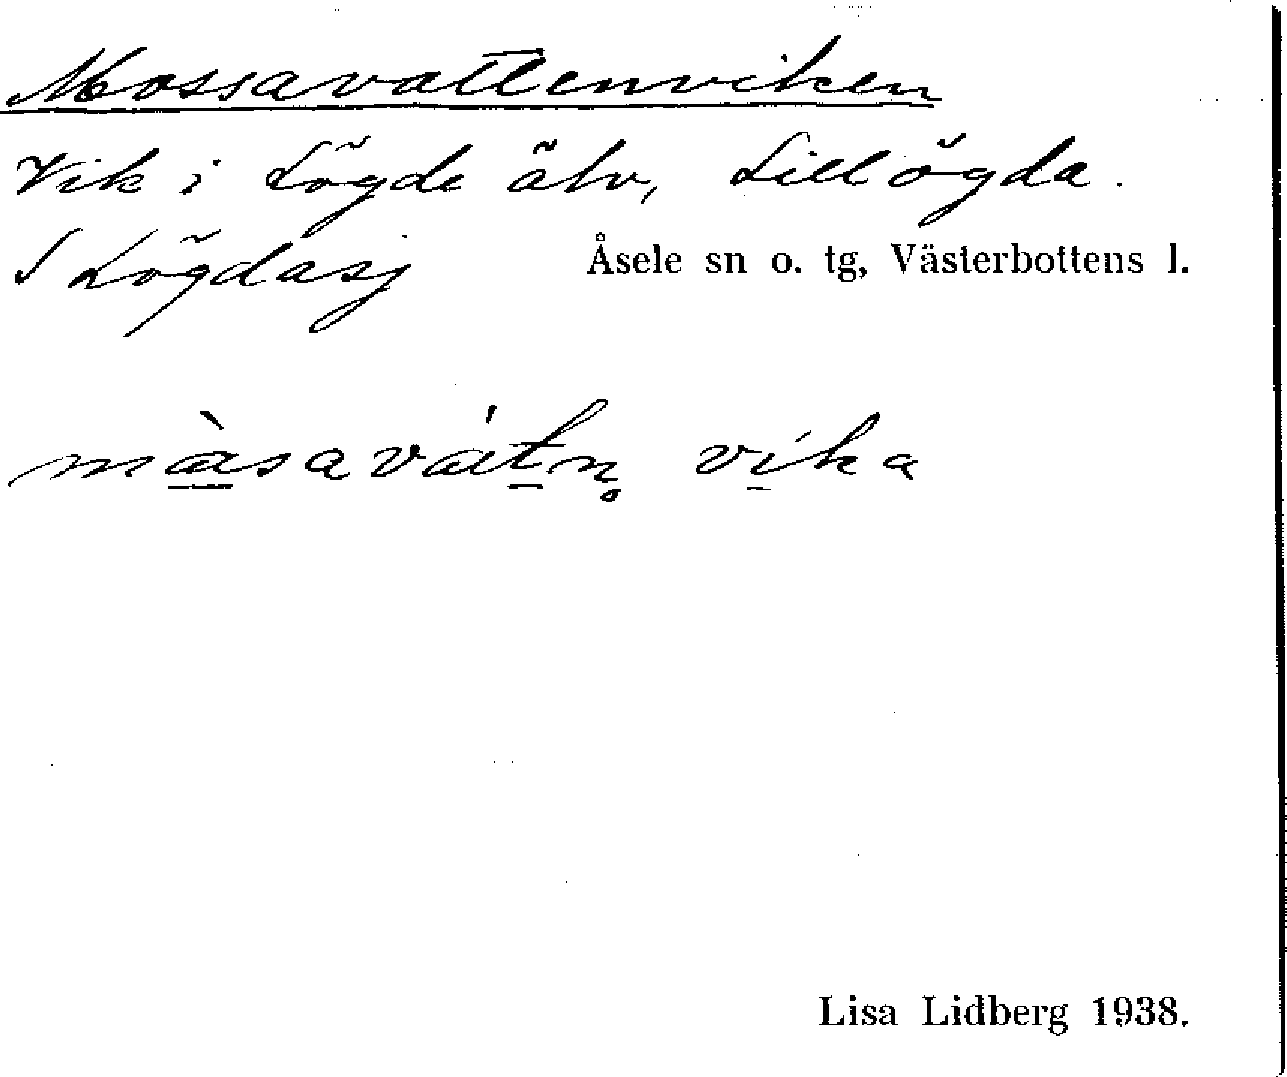 Mossavattenviken
Vik i Lögde älv, Lillögda.
S Lögdasj
Åsele sn o. tg, Västerbottens l.
màsavátn̥ víka
Lisa Lidberg 1938.